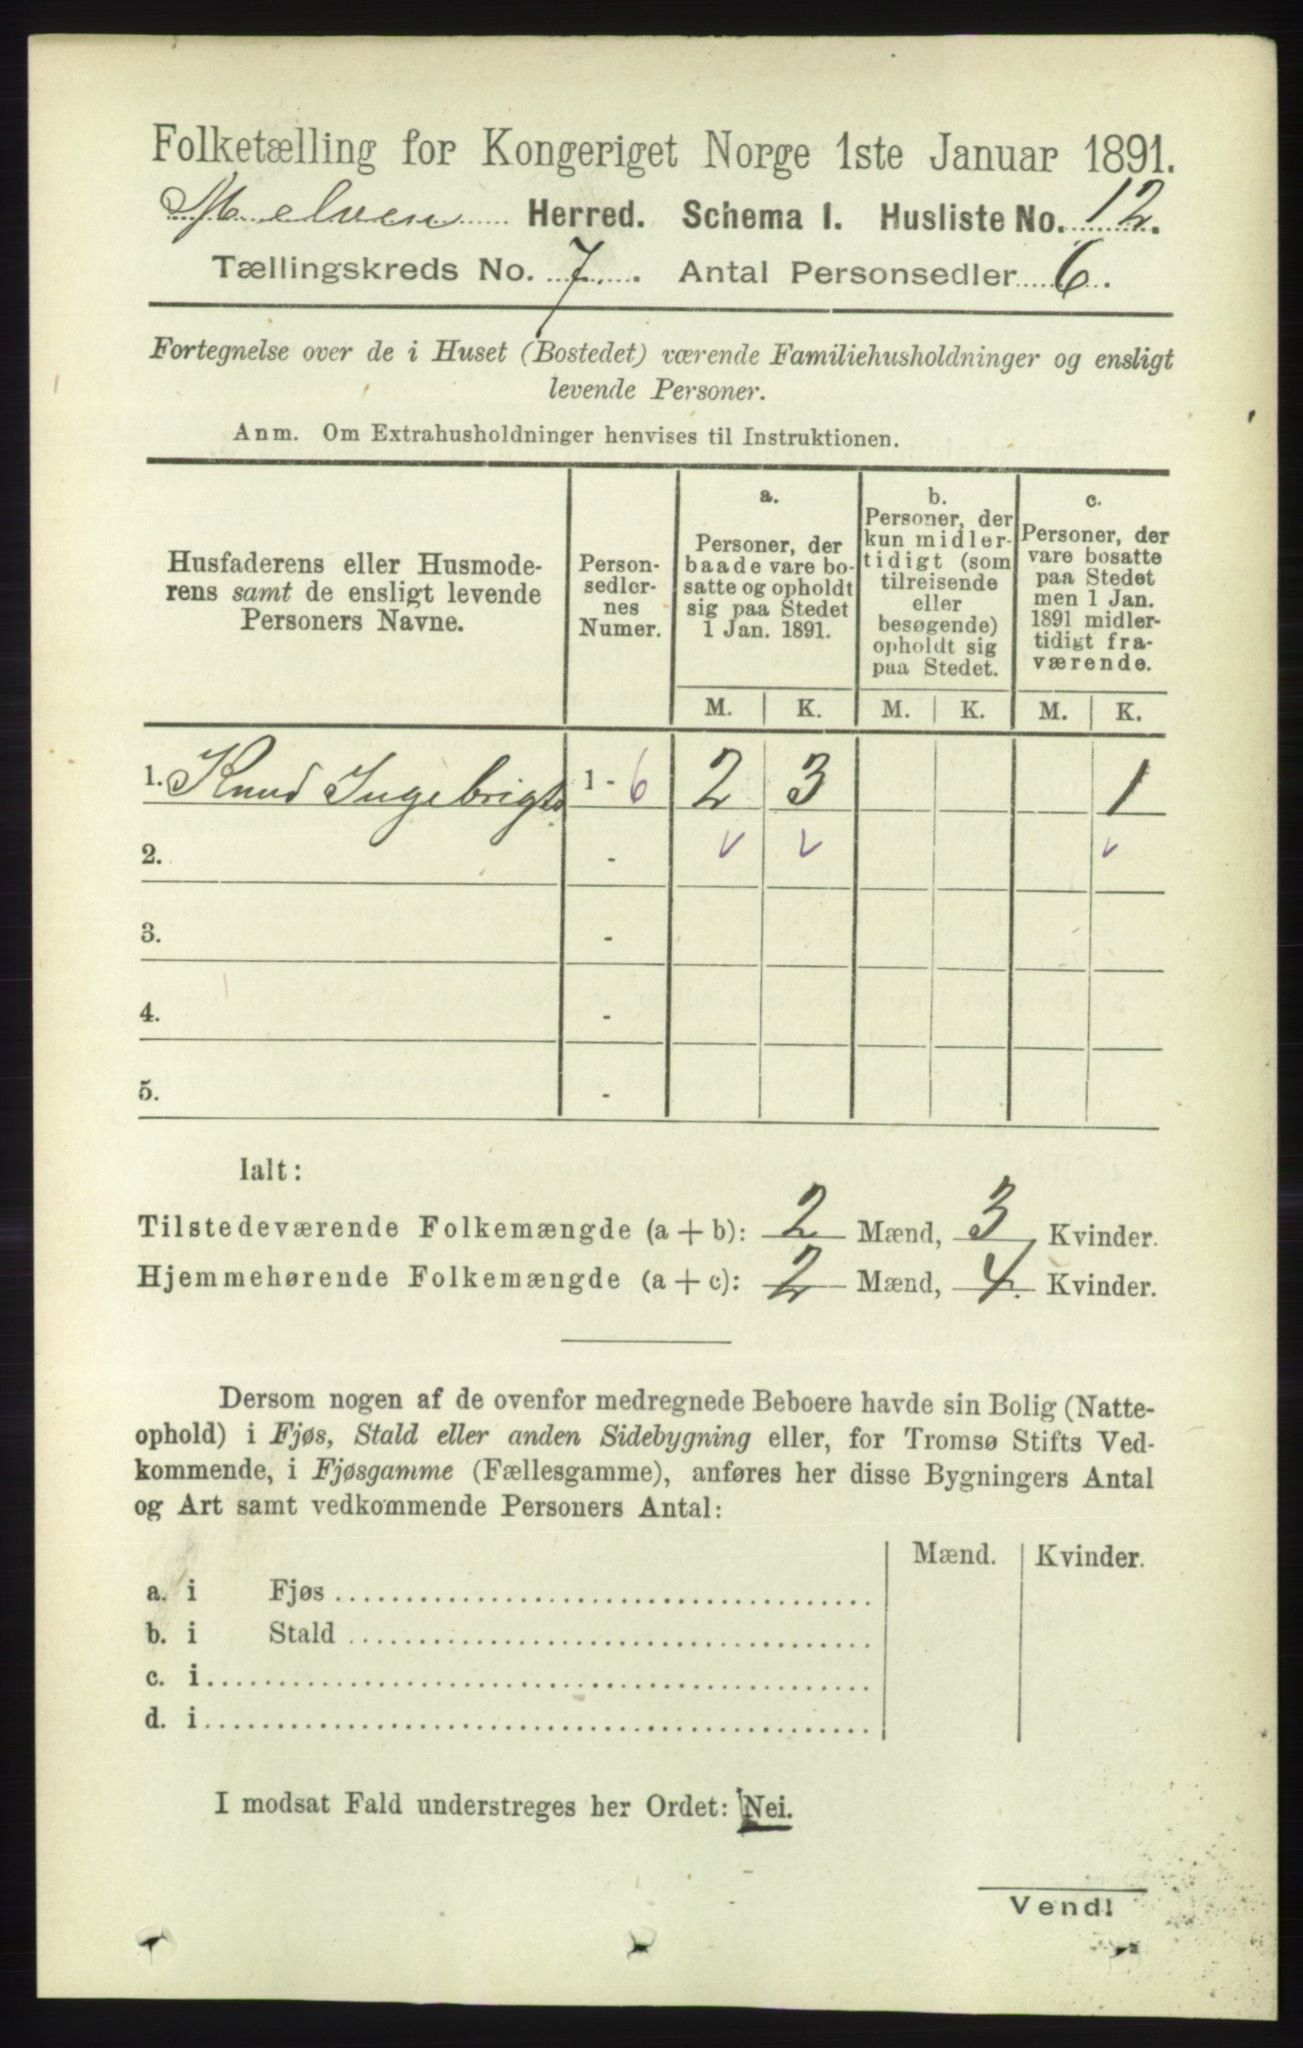 Folketælling for Kongeriget Norge 1ste Januar 1891.
Herred. Schema I. Husliste No. 12.
Tællingskreds No. 7. Antal Personsedler 6.
Fortegnelse over de i Huset (Bostedet) værende Familiehusholdninger og ensligt
levende Personer.
Anm. Om Extrahusholdninger henvises til Instruktionen.
Husfaderens eller Husmode-
rens samt de ensligt levende
Personers Navne.
Person-
sedler-
nes
Numer.
a.
Personer, der
baade vare bo-
satte og opholdt
sig paa Stedet
1 Jan. 1891.
b.
Personer, der
kun midler-
tidigt (som
tilreisende
eller
besøgende)
opholdt sig
paa Stedet.
c.
Personer, der
vare bosatte
paa Stedet
men 1 Jan.
1891 midler-
tidigt fra-
værende.
M. K. M. K. M. K.
1. Knud Ingebrigts 1 - 6 2 3 1
2. - v v v
3. -
4. -
5. -
Ialt:
Tilstedeværende Folkemængde (a + b): 2 Mænd, 3 Kvinder.
Hjemmehørende Folkemængde (a + c): 2 Mænd, 4 Kvinder.
Dersom nogen af de ovenfor medregnede Beboere havde sin Bolig (Natte-
ophold) i Fjøs, Stald eller anden Sidebygning eller, for Tromsø Stifts Ved-
kommende, i Fjøsgamme (Fællesgamme), anføres her disse Bygningers Antal
og Art samt vedkommende Personers Antal:
Mænd. Kvinder.
a. i Fjøs
b. i Stald
c. i
d. i
I modsat Fald understreges her Ordet: Nei.
Vend!